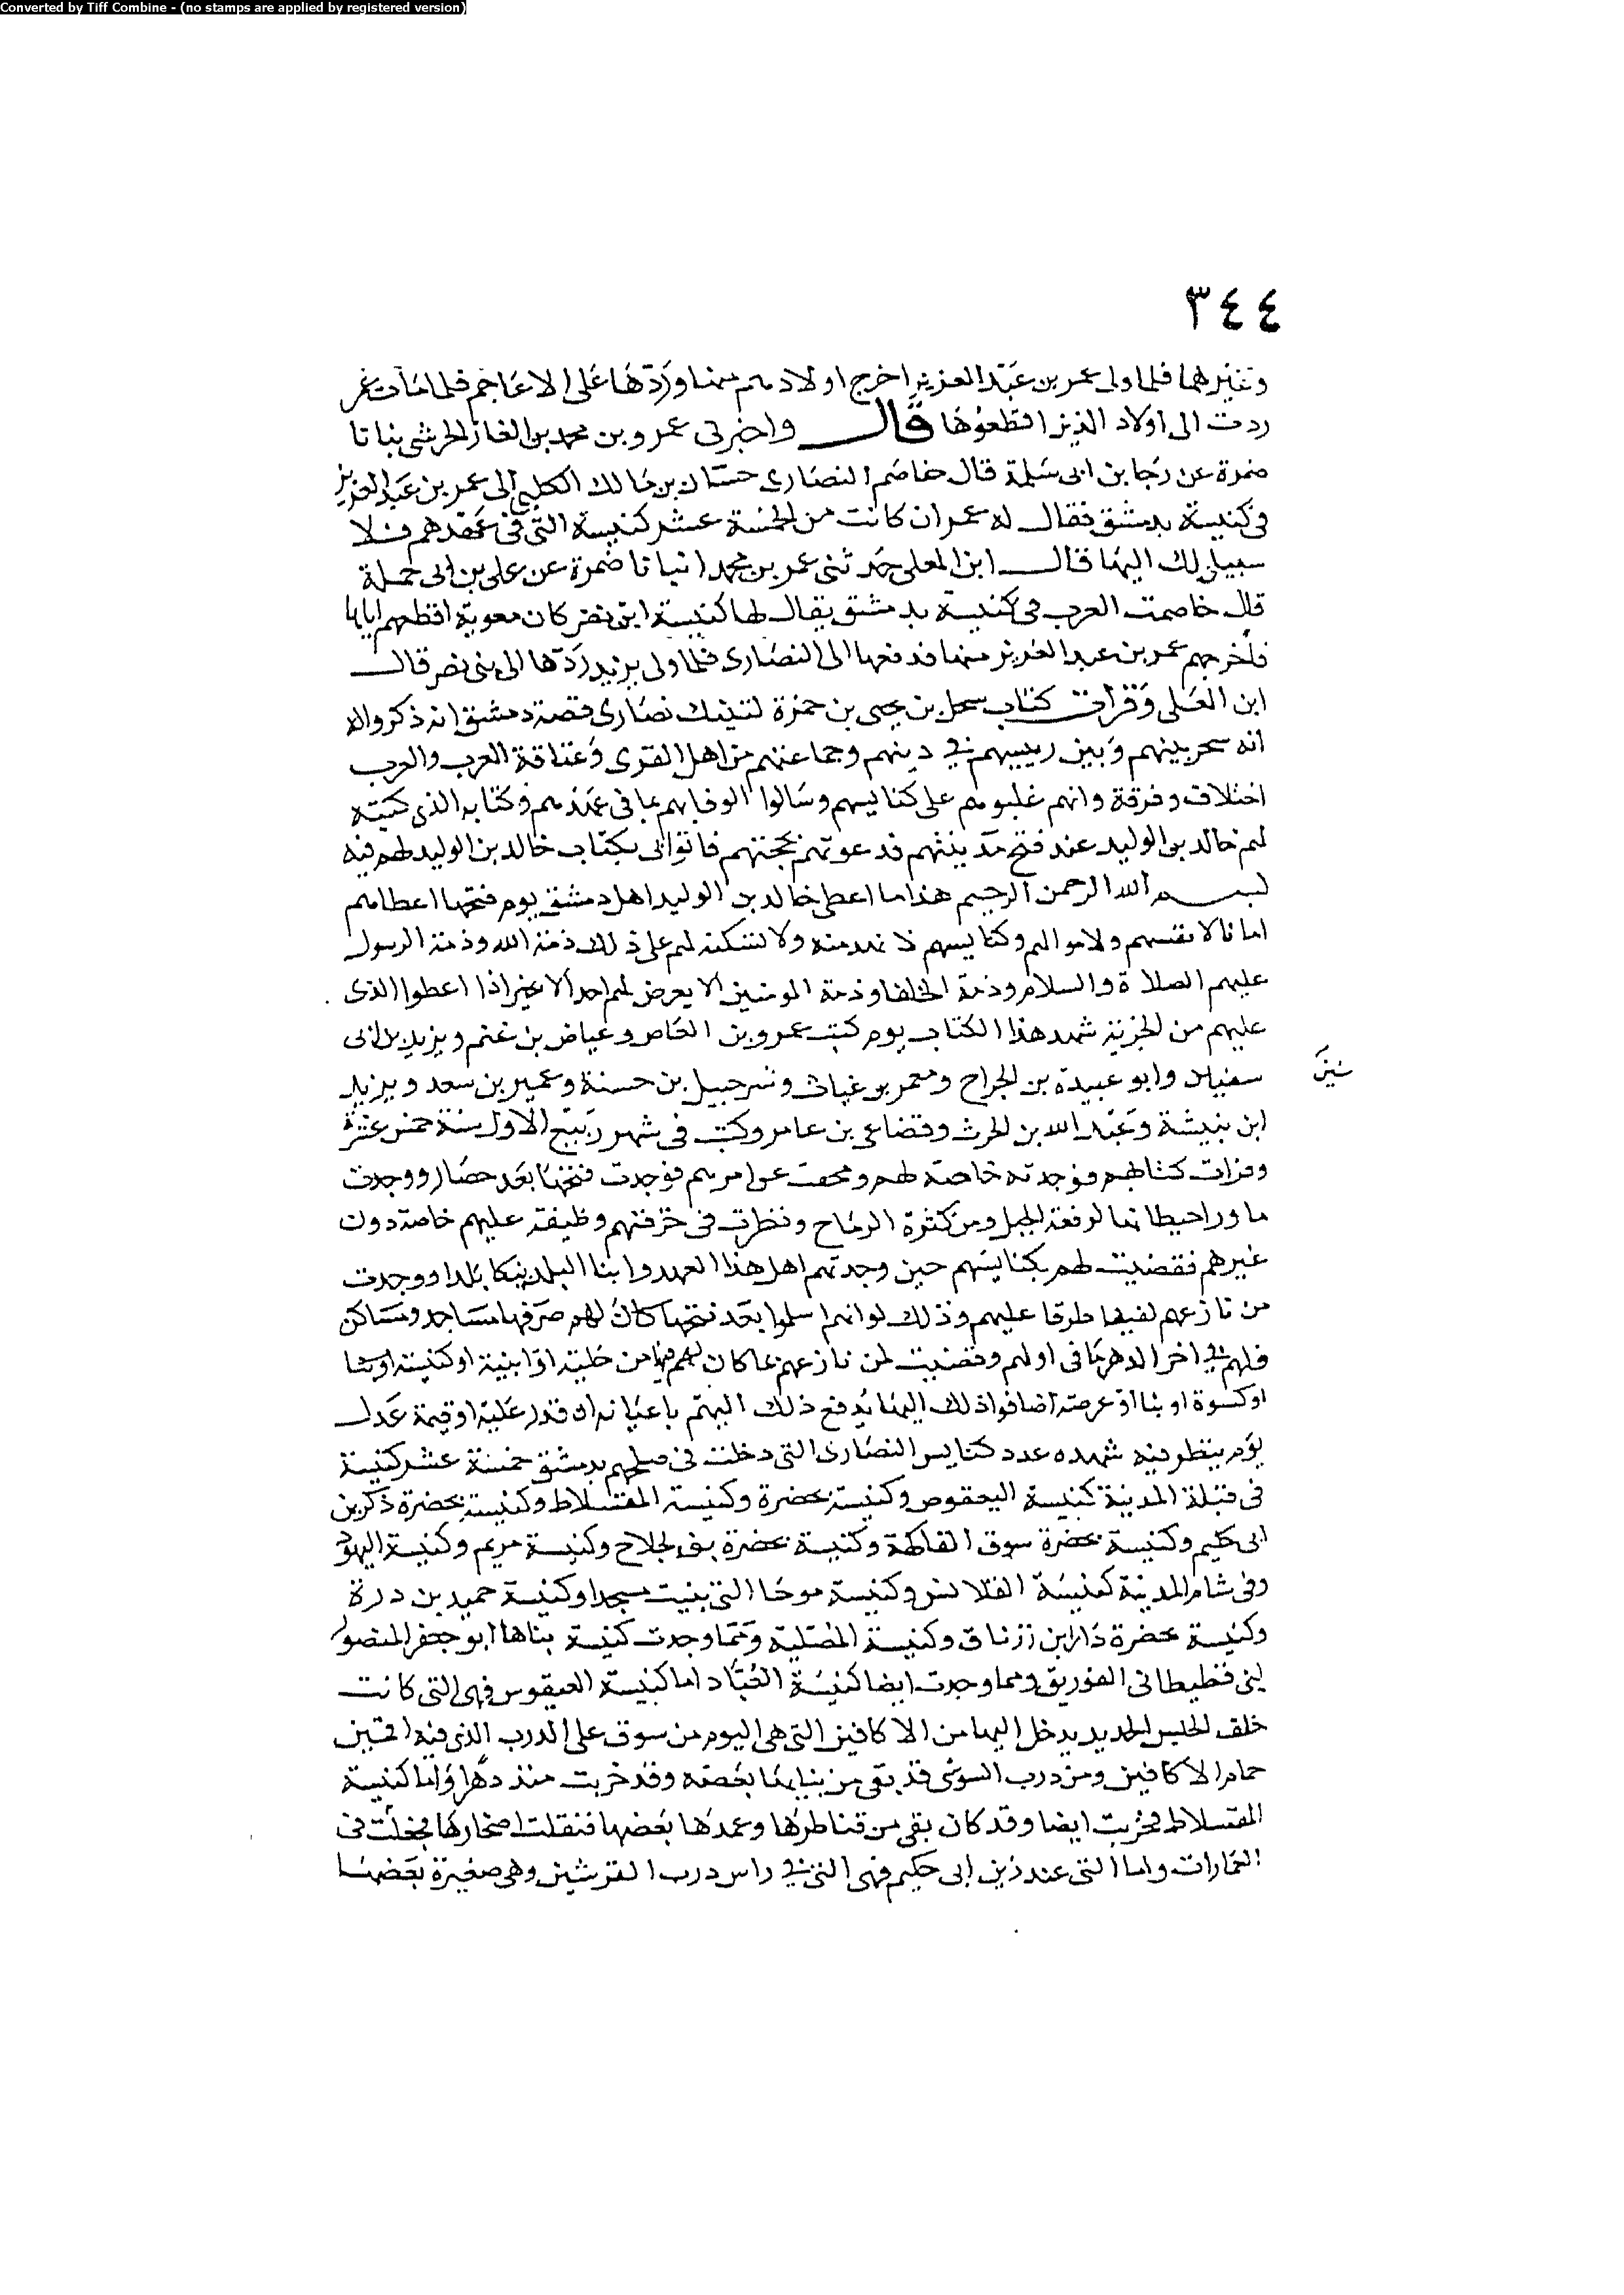 Converted by Tiff Combine - (no stamps are applied by registered version)
٣٤٤
وغيرهما فلما ولى عمر بن عبد العزيز اخرج اولادهم منها وردها على الاعاجم فلما مات عمر
ردت الى اولاد الذين اقطعوها قال واخبرنى عمرو بن محمد بن الغاز الجرشى انباتا
ضمرة عن رجا بن ابى سلمة قال خاصم النصارى حسان بن مالك الكلبى الى عمر بن عبد العزيز
فى كنيسة بدمشق فقال له عمر ان كانت من الخمسة عشر كنيسة التى فى عهدهم فلا
سبيل لك اليها قال ابن المعلى حدثنى عمر بن محمد انباتا ضمرة عن على بن ابى حملة
قال خاصمت العرب فى كنيسة بدمشق يقال لها كنيسة ابن نصر كان معوية اقطعهم اياها
فاخرجهم عمر بن عبد العزيز منها فدفعها الى النصارى فلما ولى يزيد ردها الى بنى نصر قال
ابن المعلى وقرات كتاب سحل بن يحيى بن حمزة نصارى قصة دمشق انه ذكروا له
انه سحر بينهم وبين رييسهم فى دينهم وجماعتهم من اهل القرى وعتاقة العرب والعرب
اختلاف وفرقة وانهم غلبوهم على كنايسهم وسالوا الوفا بهم بما فى عهدهم وكتابه الذى كتبه
لهم خالد بن الوليد عند فتح مدينتهم فدعوتهم بحجتهم فاتوا لى بكتاب خالد بن الوليد لهم فيه
بسم الله الرحمن الرحيم هذا ما اعطى خالد بن الوليد اهل دمشق يوم فتحها اعطاهم
امانا لانفسهم ولاموالهم وكنايسهم لا تهدمنه ولا تسكنه لهم على ذلك ذمة الله وذمة الرسول
عليهم الصلاة والسلام وذمة الخلفا وذمة المومنين الا يعرض لهم احد الا بخير اذا اعطوا الذى
عليهم من الجزية شهد هذا الكتاب يوم كتب عمرو بن العاص وعياض بن غنم ويزيد بن ابى
سفيان وابو عبيدة بن الجراح ومعمر بن غياث وشرحبيل بن حسنة وعمير بن سعد ويزيد
ابن نبيشة وعبد الله بن الحرث وقضاعى بن عامر وكتب فى شهر ربيع الاول سنة خمس عشرة
وقرات كتابهم فوجدته خاصة لهم وفحصت عن امرهم فوجدت فتحها بعد حصار ووجدت
ما ورا حيطانها لرفعة الخيل ومركزة الرماح ونظرت فى جزيتهم وظيفة عليهم خاصة دون
غيرهم فقضيت لهم بكنايسهم حين وجدتهم اهل هذا العهد وابنا البلد بنكا تلدا ووجدت
من نازعهم لفيفا طرقا عليهم وذلك لو انهم اسلموا بعد فتحها كان لهم صرفها مساجد ومساكن
فلهم فى اخر الدهر ما فى اوله وقضيت لمن نازعهم بما كان لهم فيها من حلية او ابنية او كنيسة او
او كسوة او بنا او عرصة اضافوا ذلك اليها يدفع ذلك اليهم باعيانه ان قدر عليه او قيمة عدل
يوم ينظر فيه شهده عدد كنايس النصارى التى دخلت فى صلحهم بدمشق خمسة عشر كنيسة
فى قبلة المدينة كنيسة اليعقوص وكنيسة بحضرة وكنيسة المقسلاط وكنيسة بحضرة ذكر بن
ابى حكيم وكنيسة بحضرة سوق الفاكهة وكنيسة بحضرة بنى لجلاح وكنيسة مريم وكنيسة اليهود
وفى شام المدينة كنيسة القلانس وكنيسة موحنا التى بنيت مسجدا وكنيسة حميد بن درة
وكنيسة بحضرة دار ابن زرناق وكنيسة المصلبة ومما وجدت كنيسة بناها ابو جعفر المنصور
لبنى قطيطا فى الفوريق ومما وجدت ايضا كنيسة العباد اما كنيسة اليعقوس فهى التى كانت
خلف الحبس الجديد يدخل اليها من الاكافين التى هى اليوم من سوق على الدرب الذى فيه
حمام الاكافين ومن درب السوسى قد بقى من بنايها بعضه وقد خربت منذ دهر واما كنيسة
المقسلاط فخربت ايضا وقد كان بقى من قناطرها وعمدها بعضها فنقلت احجارها فجعلت فى
العمارات واما التى عند ذين ابى حكيم فهى التى فى راس درب القرشيين وهى صغيرة بعضها